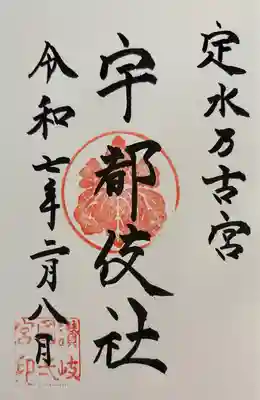 定水万古宮
宇都伎社
令和七年二月八日
讃岐
宮印